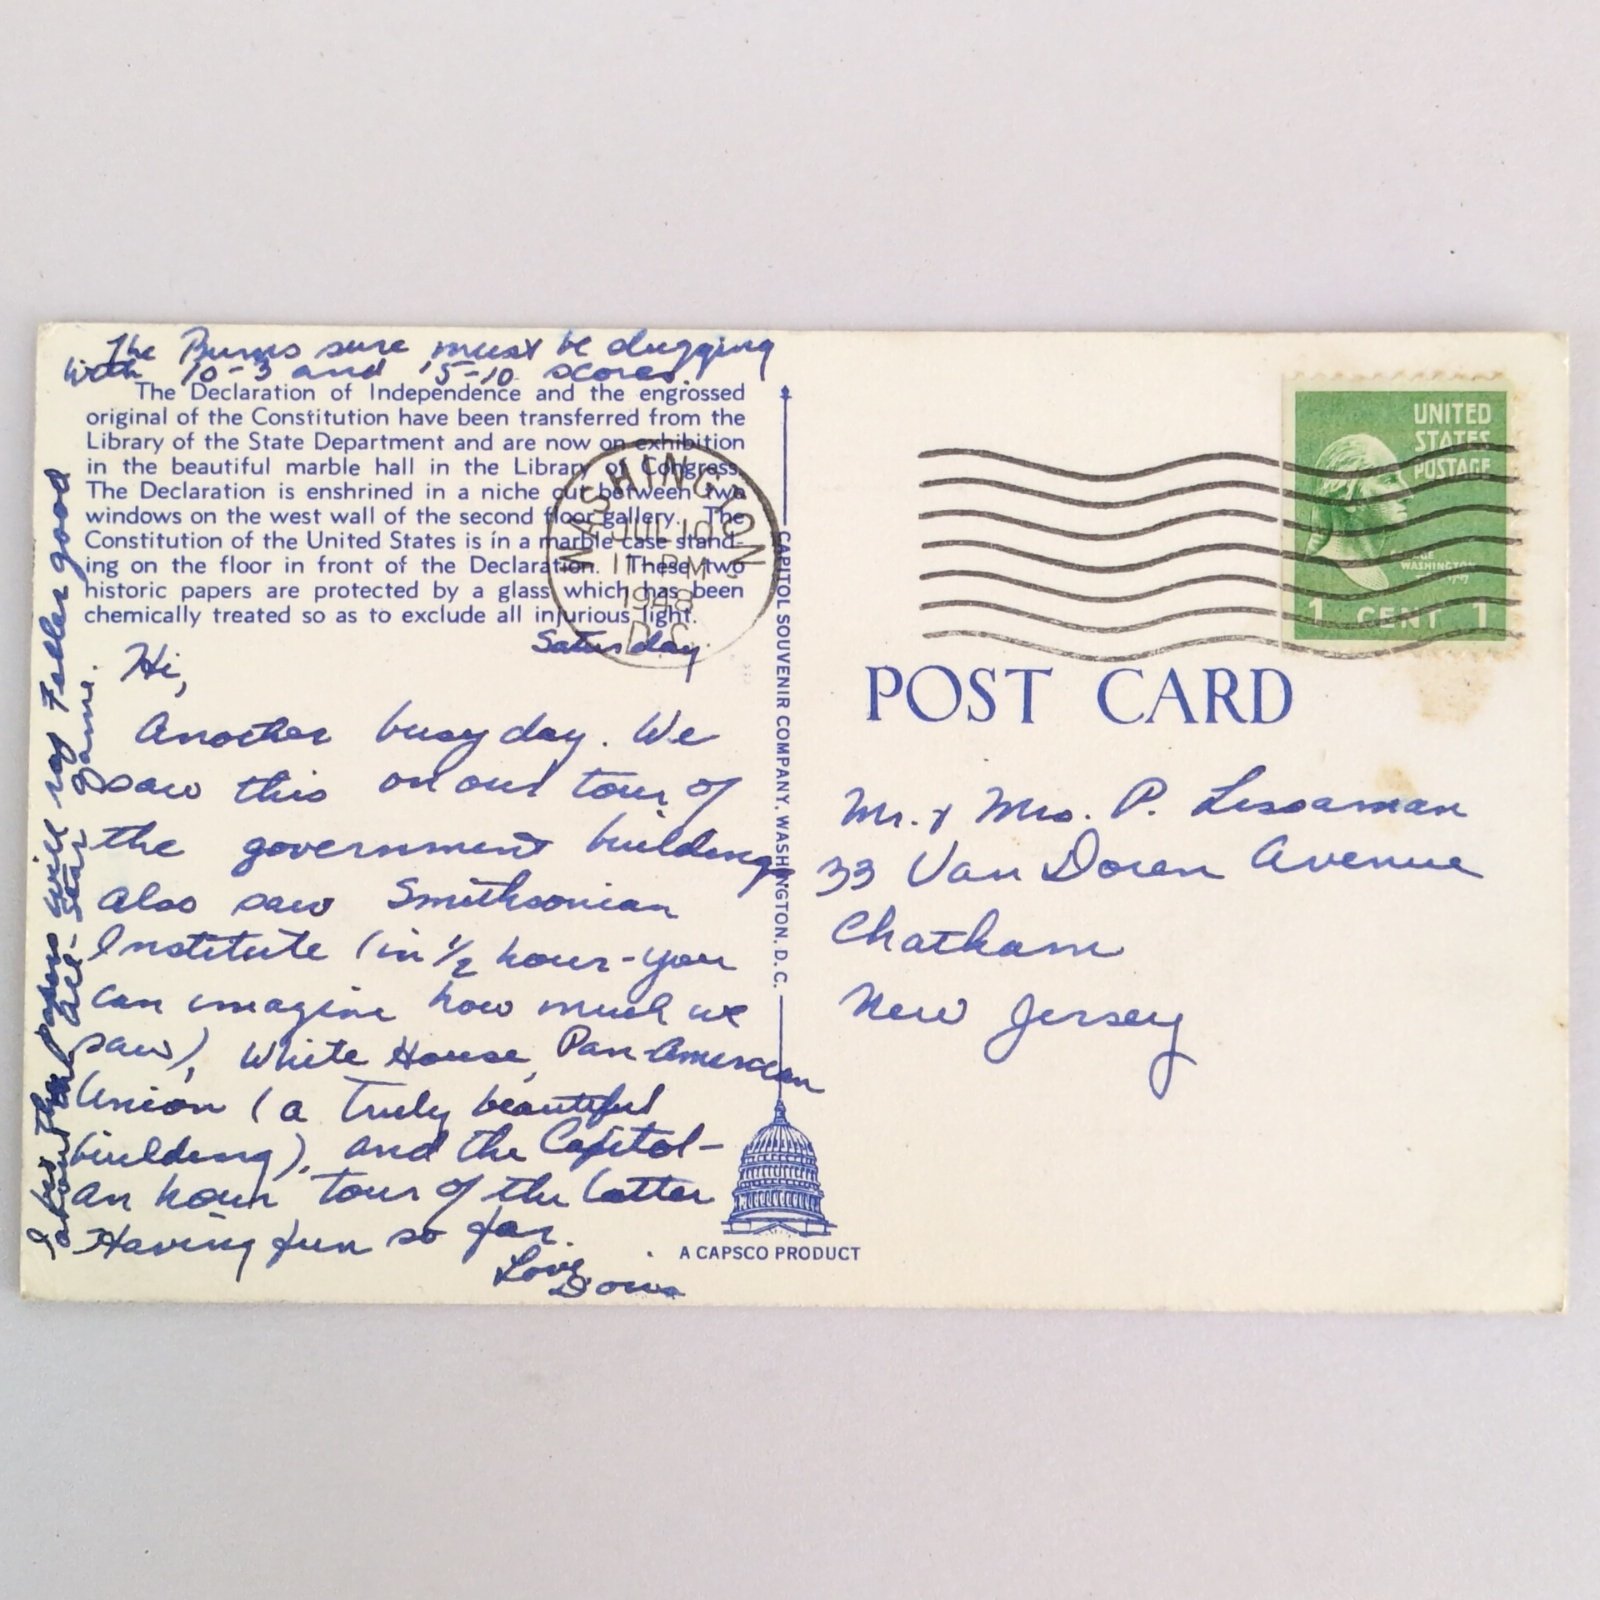 The Bums sure must be slugging
with 10-3 and 15-10 scores.
The Declaration of Independence and the engrossed
original of the Constitution have been transferred from the
Library of the State Department and are now on exhibition
in the beautiful marble hall in the Library of Congress.
The Declaration is enshrined in a niche cut between two
windows on the west wall of the second floor gallery. The
Constitution of the United States is in a marble case stand-
ing on the floor in front of the Declaration. These two
historic papers are protected by a glass which has been
chemically treated so as to exclude all injurious light.
WASHINGTON
JUL 10
11 PM
1948
D.C.
Saturday
Hi,
Another busy day. We
saw this on our tour of
the government buildings
also saw Smithsonian
Institute (in 1/2 hour - you
can imagine how much we
saw), White House, Pan-American
Union (a truly beautiful
building), and the Capitol -
an hour tour of the latter
Having fun so far.
Love,
Doris
the papers will rap Feller good
about the All-Star game.
CAPITOL SOUVENIR COMPANY, WASHINGTON, D. C.
A CAPSCO PRODUCT
UNITED
STATES
POSTAGE
GEORGE
WASHINGTON
1 CENT 1
POST CARD
Mr. & Mrs. P. Lissaman
33 Van Doren Avenue
Chatham
New Jersey